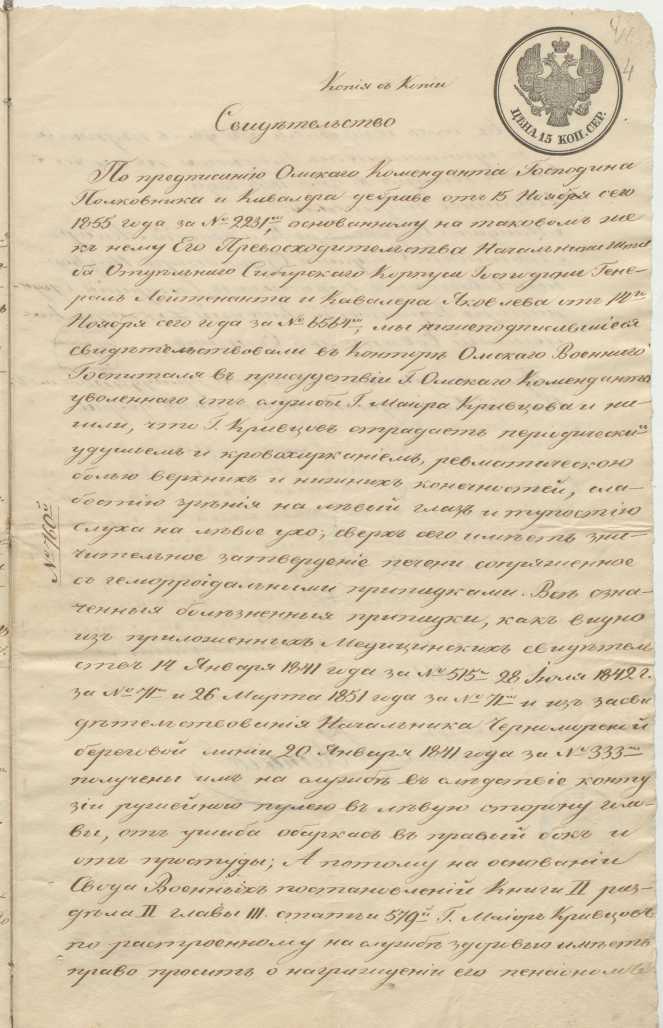 4
Копія съ Копіи
ЦЕНА 15 КОП. СЕР.
Свидѣтельство
По предписанію Омскаго Коменданта Господина
Полковника и Кавалера деГраве отъ 15 Ноября сего
1855 года за № 2231ᵐ, основанному на таковомъ же
къ нему Его Превосходительства Начальника Шта
ба Отдѣльнаго Сибирскаго Корпуса Господина Гене-
ралъ Лейтенанта и Кавалера Яковлева отъ 14го
Ноября сего года за № 6564ᵐ, мы нижеподписавшіеся
свидѣтельствовали въ Конторѣ Омскаго Военнаго
Госпиталя въ присудствіи Г. Омскаго Коменданта
уволеннаго отъ службы Г. Маіора Кривцова и на-
шли, что Г. Кривцовъ страдаетъ періодически
удушьемъ и кровохарканіемъ, ревматическою
болью верхнихъ и нижнихъ конечностей, сла-
бостію зрѣнія на лѣвый глазъ и тупостію
слуха на лѣвое ухо; сверхъ сего имѣетъ зна-
чительное затвердѣніе печени сопряженное
съ геморроідальными припадками. Всѣ озна-
ченныя болѣзненныя припадки, какъ видно
изъ приложенныхъ Медицинскихъ свидѣтель
ствъ 14 Января 1841 года за № 515ᵐ 28 Іюля 1842 г.
за № 71ᵐ и 26 Марта 1851 года за № 71ᵐ и изъ засви
дѣтельствованія Начальника Черноморской
береговой линіи 20 Января 1841 года за № 333ᵐ
получены имъ на службѣ въ слѣдствіе конту
зіи ружейною пулею въ лѣвую сторону голо-
вы, отъ ушиба обаркасъ въ правый бокъ и
отъ простуды; А потому на основаніи
Свода Военныхъ постановленій Книги II раз-
дѣла II главы III. статьи 579й Г. Маіоръ Кривцовъ
по растроенному на службѣ здоровью имѣетъ
право просить о награжденіи его пенсіономъ